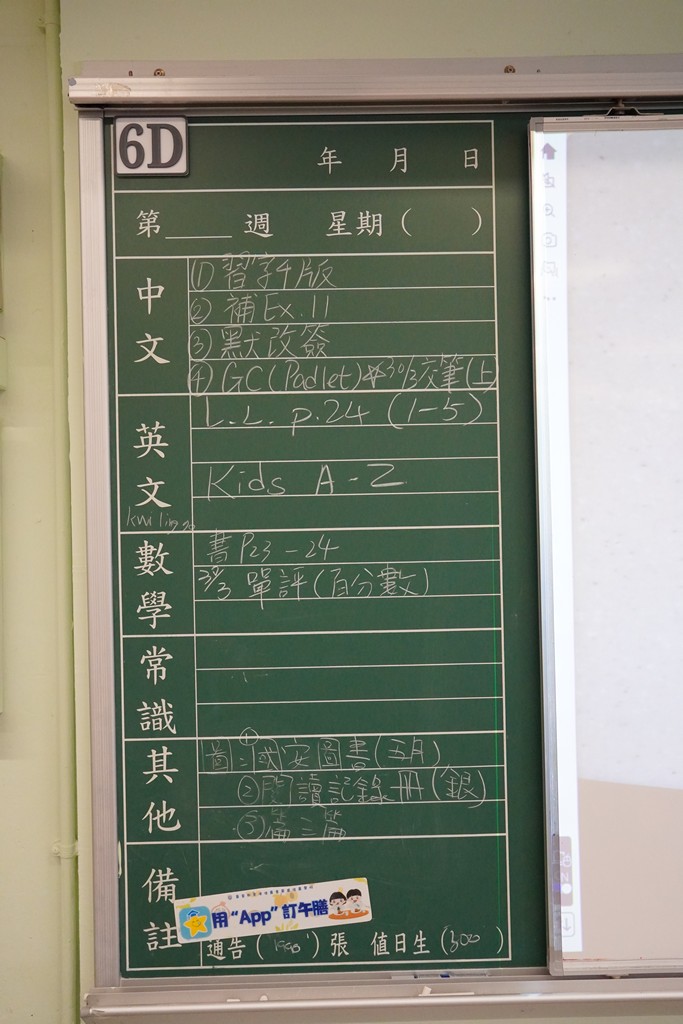 6D
年 月 日
第 週 星期( )
中文
① 習字4版
② 補Ex.11
③ 默改簽
④ GC(Padlet) 30/3交筆(上)
英文
L.L. p.24 (1-5)
Kids A-Z
數學
書P23-24
單評(百分數)
常識
其他
圖:①國安圖書(五月)
②閱讀記錄冊(銀)
備註
用“App”訂午膳
通告( )張 值日生(300)